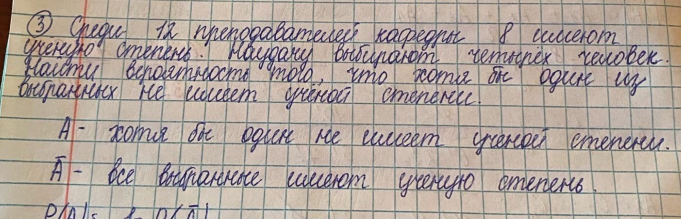 ③ Среди 12 преподавателей кафедры 8 имеют
ученую степень. Наудачу выбирают четырёх человек.
Найти вероятность того, что хотя бы один из
выбранных не имеет учёной степени.
A - хотя бы один не имеет ученой степени.
Ā - все выбранные имеют ученую степень.
P(A) = 1 - P(Ā)